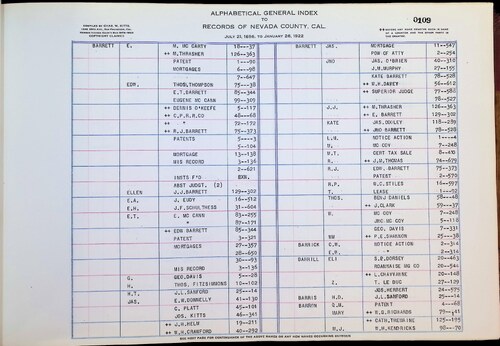 ALPHABETICAL GENERAL INDEX
TO
RECORDS OF NEVADA COUNTY, CAL.
JULY 21, 1856, TO JANUARY 28, 1922
COPYRIGHT CLAIMED
0109
BARRETT E. M. MC CARTY 18--37
++ M. THRASHER 126--363
PATENT 1--90
MORTGAGES 6--98
7--647
EDW. THOS. THOMPSON 75--38
E.T. BARRETT 85--344
EUGENE MC CANN 99--309
++ DENNIS O'KEEFE 5--117
++ C.P.R.R. CO 46--68
++ " 72--172
++ R.J. BARRETT 75--373
PATENTS 5---3
5--104
MORTGAGE 13--138
MIS RECORD 3--136
2--621
INSTS F'D BXN.
ABST JUDGT. (2)
ELLEN J.J. BARRETT 129--302
E.A. J. EUDY 16--512
E.H. J.F. SCHULTHESS 31--604
E.T. E. MC CANN 83--255
87--171
++ EDW BARRETT 85--344
PATENT 3--321
MORTGAGES 27--357
28--650
30---93
MIS RECORD 3--136
G. GEO. DAVIS 5--28
H. THOS. FITZSIMMONS 10--102
H.T. J.L. SANFORD 25--14
JAS. E.W. DONNELLY 41--138
C. PLATT 45--101
JOS. KITTS 46--341
++ J.H. HELM 19--211
++ W.H. CRAWFORD 40--292
BARRETT JAS. MORTGAGE 11--547
POW OF ATTY 2--254
JNO JAS. O'BRIEN 40--310
J.M. MURPHY 27--155
KATE BARRETT 78--528
++ H.H. DAVEY 56--612
++ SUPERIOR JUDGE 77--586
78--527
J.J. ++ M. THRASHER 126--363
++ E. BARRETT 129--302
KATE JAS. DOOLEY 118--239
++ JNO BARRETT 78--528
L.M. NOTICE ACTION 1---4
M. MC COY 7--248
M.T. CERT TAX SALE 8--410
R. ++ J.M. THOMAS 74--679
R.J. EDW. BARRETT 75--373
PATENT 2--570
R.P. W.C. STILES 16--597
T. LEASE 1--92
THOS. BENJ DANIELS 58--48
++ J. CLARK 59--37
W. MC COY 7--248
JNO. MC COY 5--110
GEO. DAVIS 7--331
WM ++ P.E. SHANNON 25--38
BARRICK C.W. NOTICE ACTION 2--314
E.W. " 2--314
BARRILL ELI S.P. DORSEY 20--463
ROUMANIE MG CO 20--541
++ L. CHAVANNE 20--148
E. T. LE DUC 27--129
JOS. HERBERT 24--571
BARRIS H.D. J.L. SANFORD 25--14
BARRON G.M. PATENT 4--68
MARY ++ W.S. RICHARDS 79--41
++ CATH. THEURING 125--195
M.J. W.H. KENDRICKS 98--70